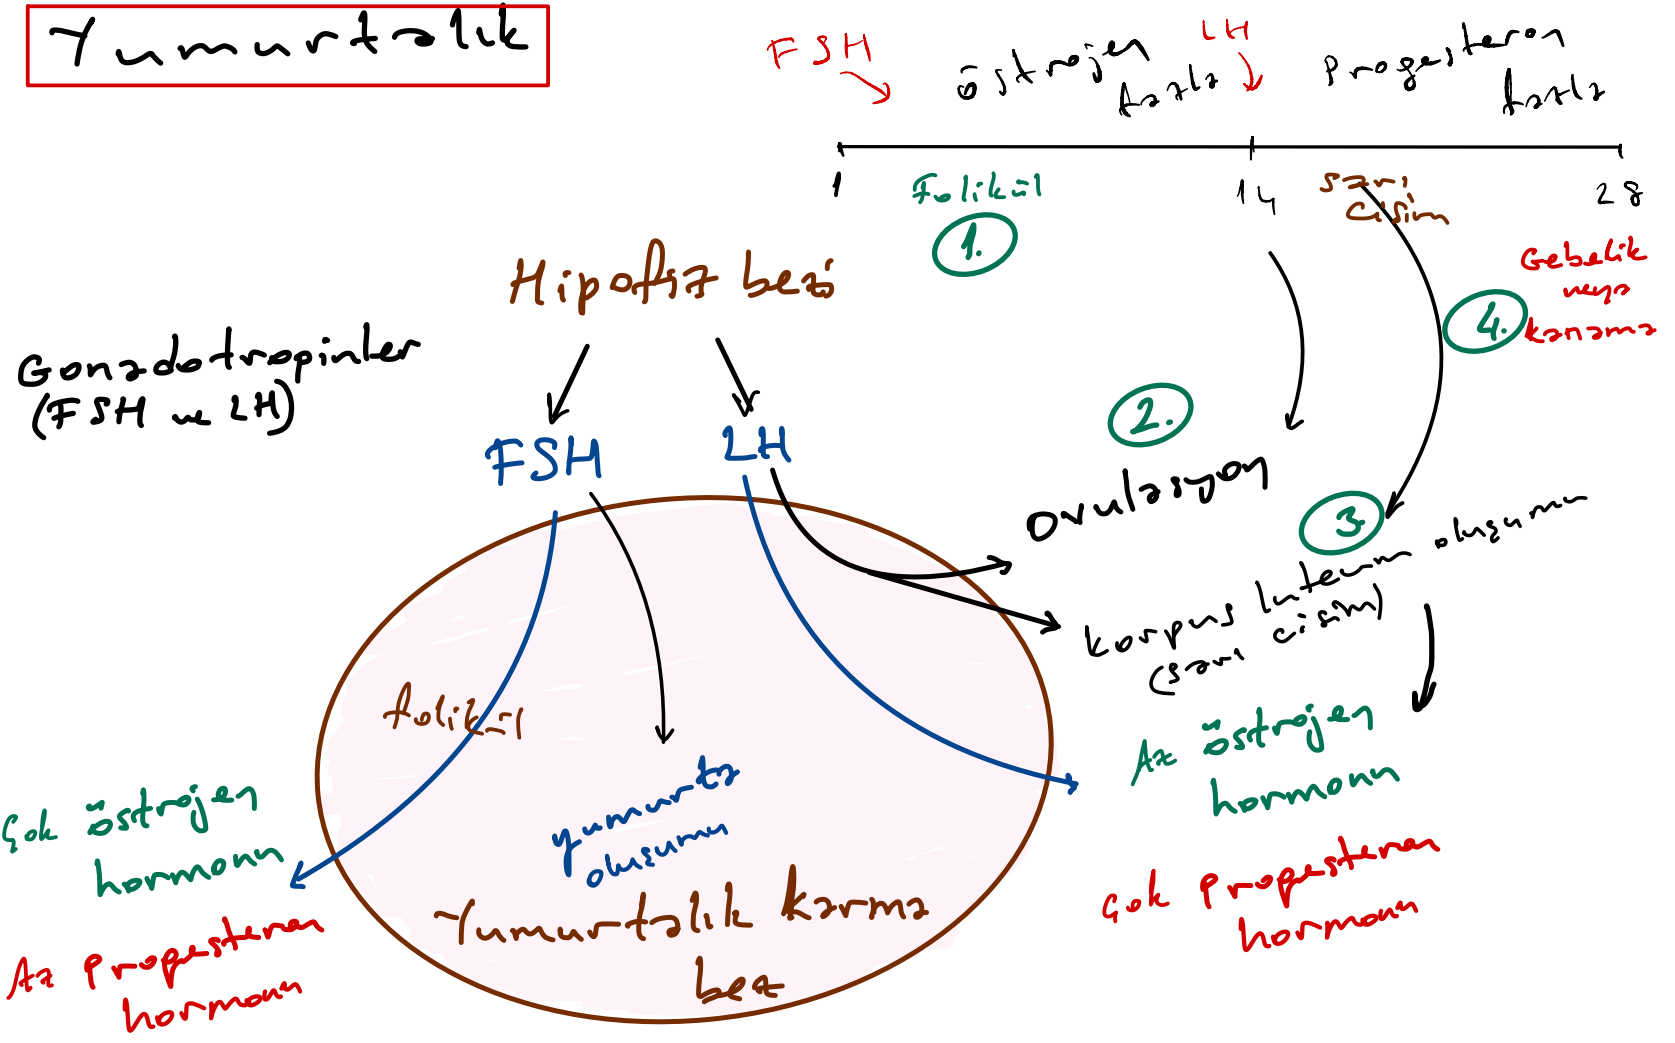 Yumurtalık
FSH
östrojen
fazla
LH
Progesteron
fazla
1
Folikül
1.
14
sarı
cisim
28
Gebelik
veya
kanama
4.
Hipofiz bezi
Gonadotropinler
(FSH ve LH)
FSH
LH
2.
Ovulasyon
3.
korpus luteum oluşumu
(sarı cisim)
folikül
yumurta
oluşumu
Yumurtalık karma
bez
Çok östrojen
hormonu
Az Progesteron
hormonu
Az östrojen
hormonu
Çok Progesteron
hormonu